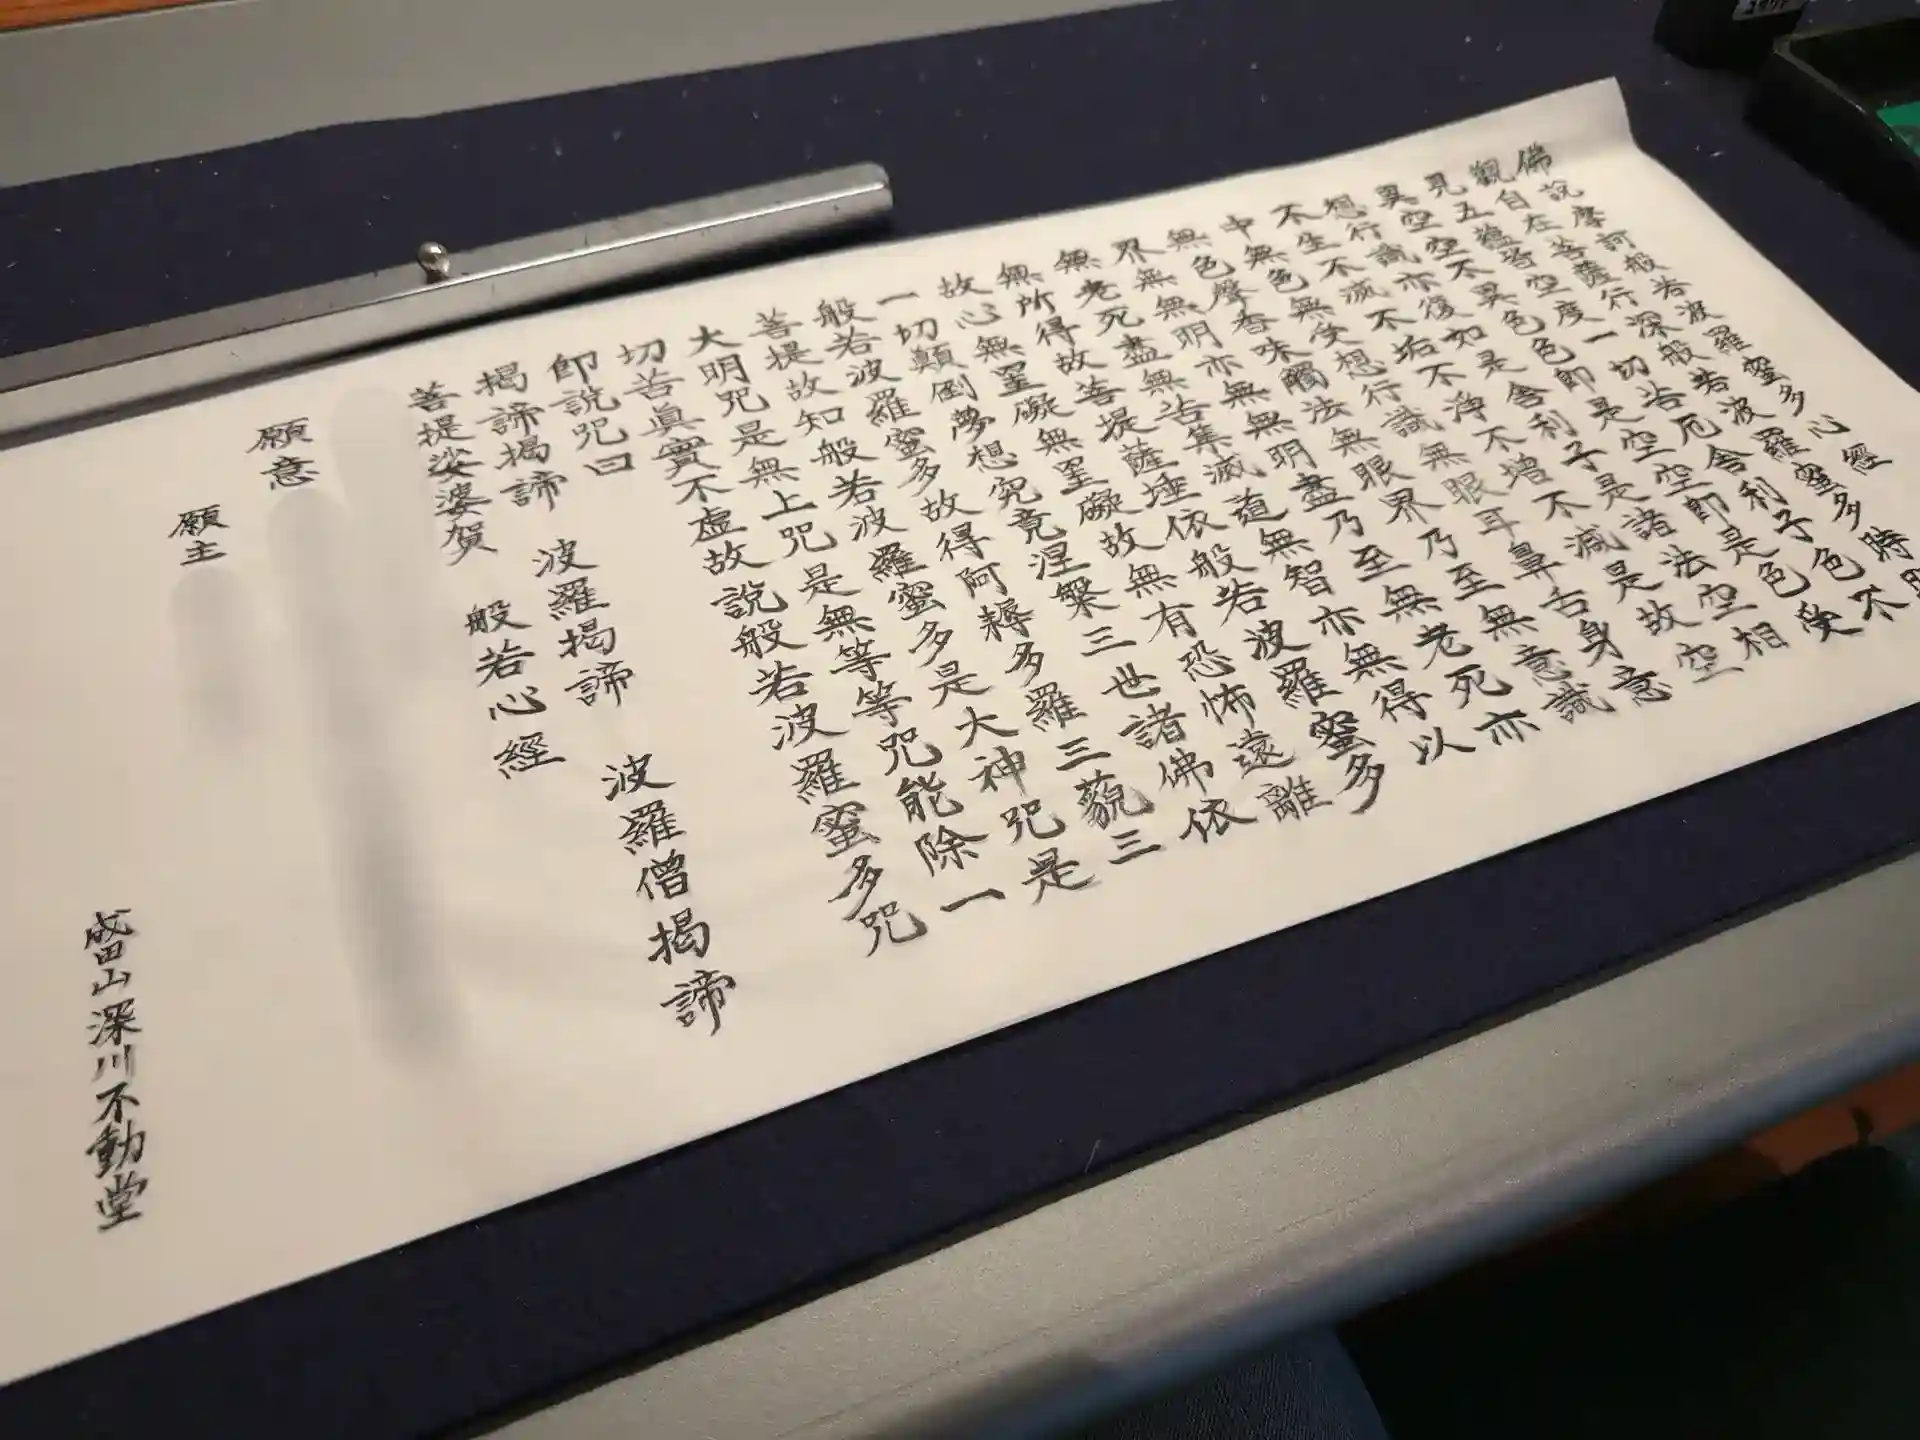 佛説摩訶般若波羅蜜多心經
觀自在菩薩行深般若波羅蜜多時照
見五蘊皆空度一切苦厄舍利子色不
異空空不異色色即是空空即是色受
想行識亦復如是舍利子是諸法空相
不生不滅不垢不淨不增不減是故空
中無色無受想行識無眼耳鼻舌身意
無色聲香味觸法無眼界乃至無意識
界無無明亦無無明盡乃至無老死亦
無老死盡無苦集滅道無智亦無得以
無所得故菩提薩埵依般若波羅蜜多
故心無罣礙無罣礙故無有恐怖遠離
一切顛倒夢想究竟涅槃三世諸佛依
般若波羅蜜多故得阿耨多羅三藐三
菩提故知般若波羅蜜多是大神咒是
大明咒是無上咒是無等等咒能除一
切苦眞實不虛故説般若波羅蜜多咒
即説咒曰
揭諦揭諦 波羅揭諦 波羅僧揭諦
菩提娑婆賀 般若心經
願意
願主
成田山深川不動堂